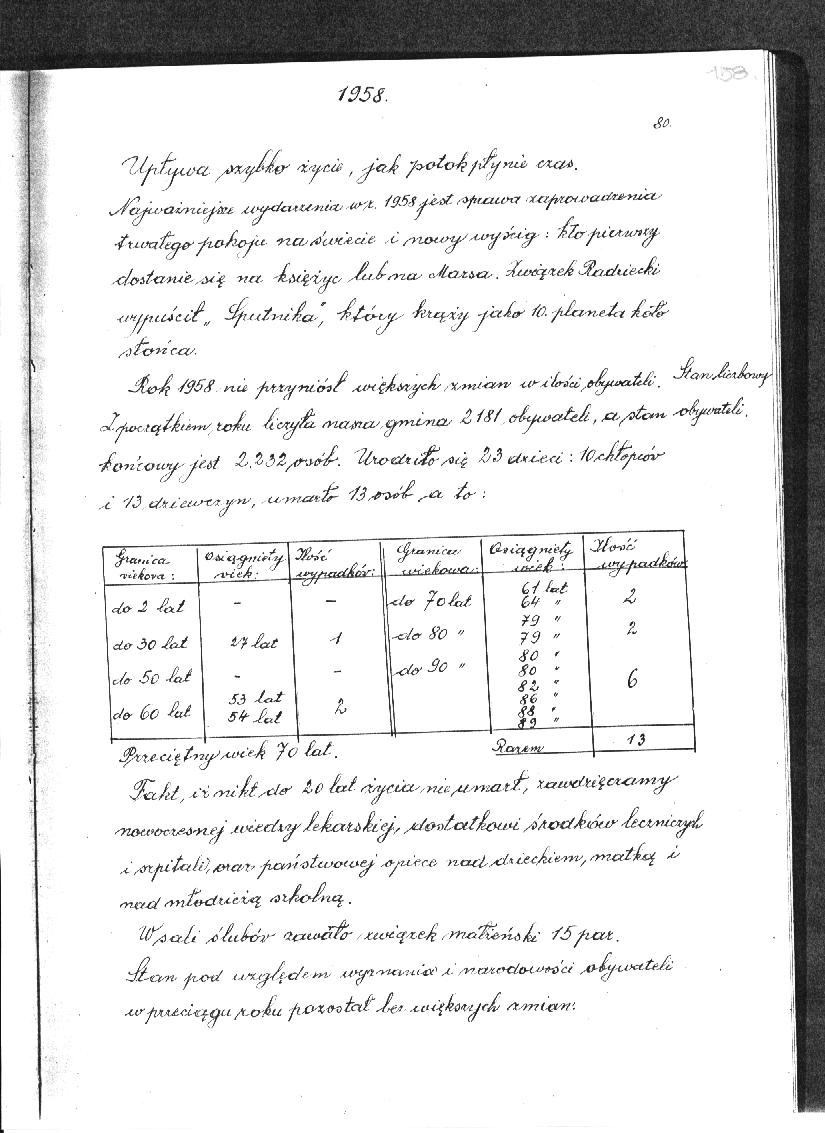 1958.
158.
80.
Upływa szybko życie, jak potok płynie czas.
Najważniejsze wydarzenia w r. 1958 jest sprawa zaprowadzenia
trwałego pokoju na świecie i nowy wyścig: kto pierwszy
dostanie się na księżyc lub na Marsa. Związek Radziecki
wypuścił „Sputnika", który krąży jako 10. planeta koło
słońca.
Rok 1958 nie przyniósł większych zmian w ilości obywateli.
Stan liczbowy
obywateli.
Z początkiem roku liczyła nasza gmina 2181 obywateli, a stan
końcowy jest 2.232 osób. Urodziło się 23 dzieci: 10 chłopców
i 13 dziewczyn, umarło 13 osób a to:
Granica wiekova: Osiągnięty viek: Ilość wypadków: Granica wiekowa: Osiągniety wiek: Ilość wypadków
do 2 lat - - do 70 lat 61 lat 2
64 "
do 30 lat 27 lat 1 do 80 " 79 " 2
79 "
do 50 lat - - do 90 " 80 " 6
80 "
82 "
do 60 lat 53 lat 2 86 "
54 lat 88 "
89 "
Przeciętny wiek 70 lat. Razem 13
Fakt, iż nikt do 20 lat życia nie umarł, zawdzięczamy
nowoczesnej wiedzy lekarskiej, dostatkowi środków leczniczych
i szpitali, oraz państwowej opiece nad dzieckiem, matką i
nad młodzieżą szkolną.
W sali ślubów zawało związek małżeński 15 par.
Stan pod względem wyznania i narodowości obywateli
w przeciągu roku pozostał bez większych zmian.